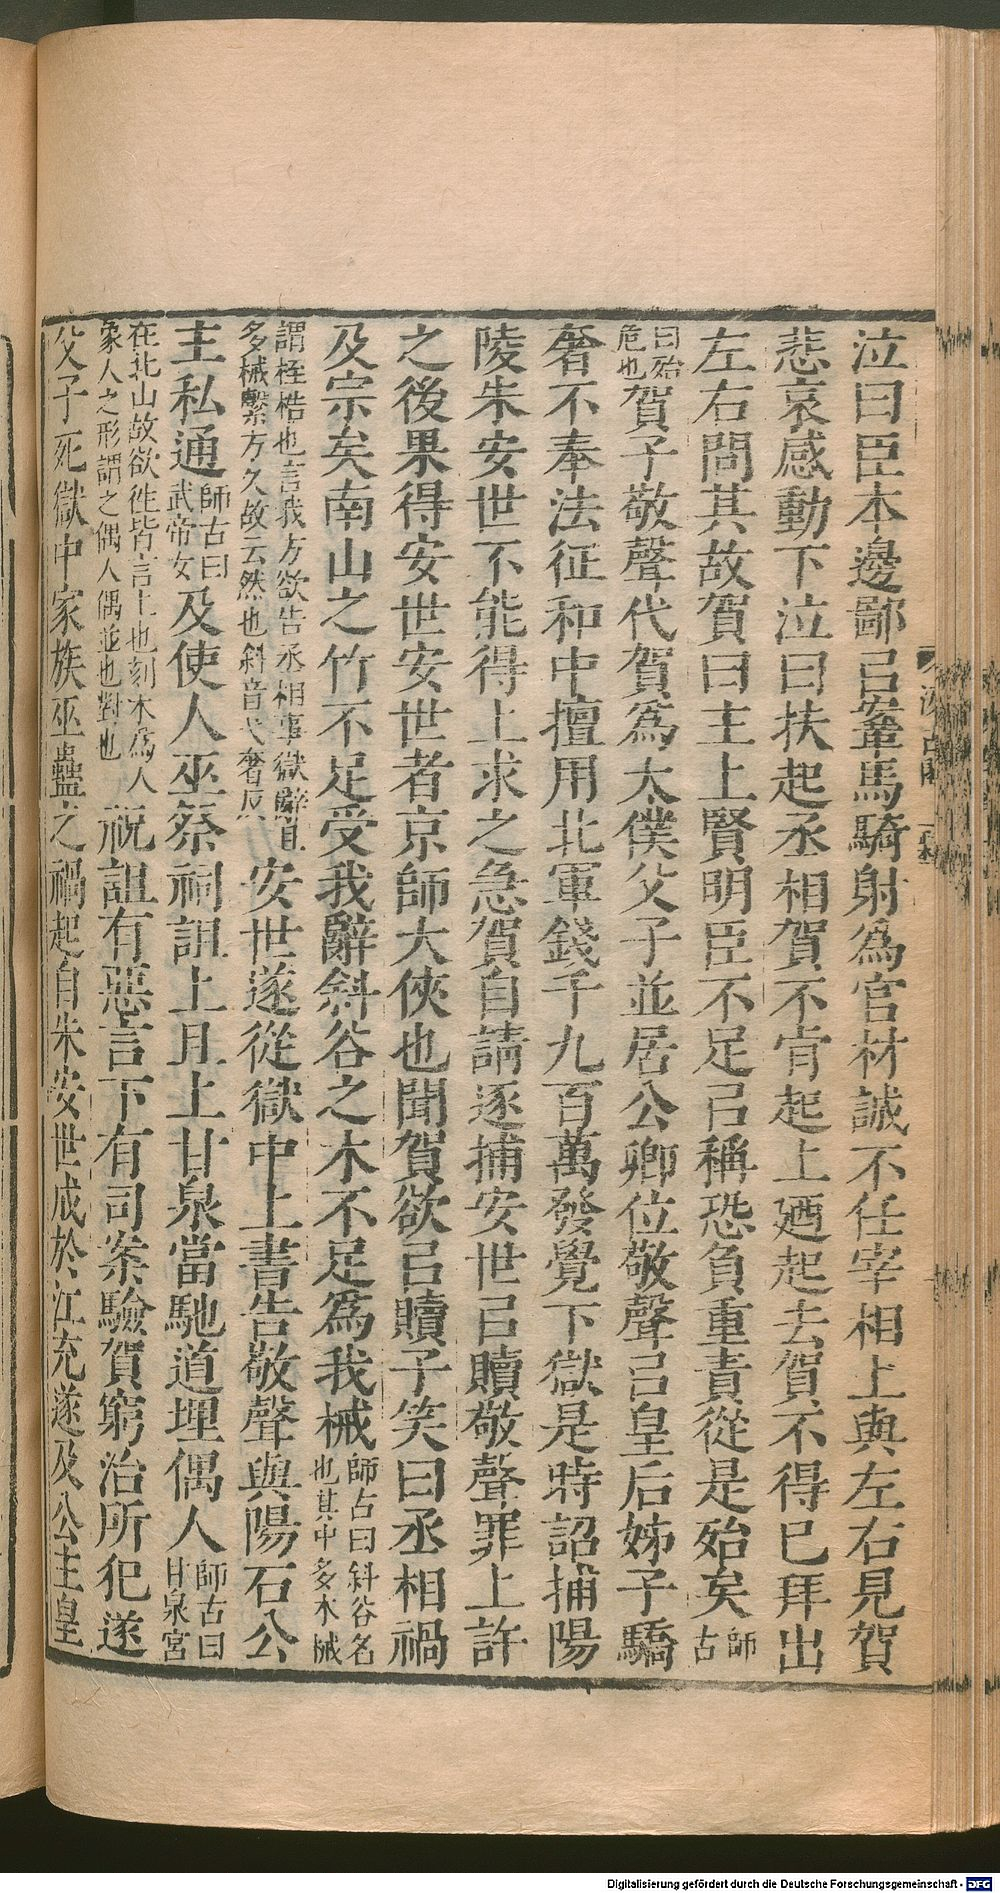 泣曰臣本邊鄙㠯鞌馬騎射爲官材誠不任宰相上與左右見賀
悲哀感動下泣曰扶起丞相賀不肯起上廼起去賀不得已拜出
左右問其故賀曰主上賢明臣不足㠯稱恐負重責從是殆矣師古
曰殆危也賀子敬聲代賀爲太僕父子並居公卿位敬聲㠯皇后姊子驕
奢不奉法征和中擅用北軍錢千九百萬發覺下獄是時詔捕陽
陵朱安世不能得上求之急賀自請逐捕安世㠯贖敬聲罪上許
之後果得安世安世者京師大俠也聞賀欲㠯贖子笑曰丞相禍
及宗矣南山之竹不足受我辭斜谷之木不足爲我械師古曰斜谷名也其中多木械
謂桎梏也言我方欲告丞相事獄辭且多械繫方久故云然也斜音弋奢反安世遂從獄中上書告敬聲與陽石公
主私通師古曰武帝女及使人巫祭祠詛上且上甘泉當馳道埋偶人師古曰甘泉宮
在北山故欲徃皆言上也刻木爲人象人之形謂之偶人偶並也對也祝詛有惡言下有司案驗賀窮治所犯遂
父子死獄中家族巫蠱之禍起自朱安世成於江充遂及公主皇
Digitalisierung gefördert durch die Deutsche Forschungsgemeinschaft - DFG